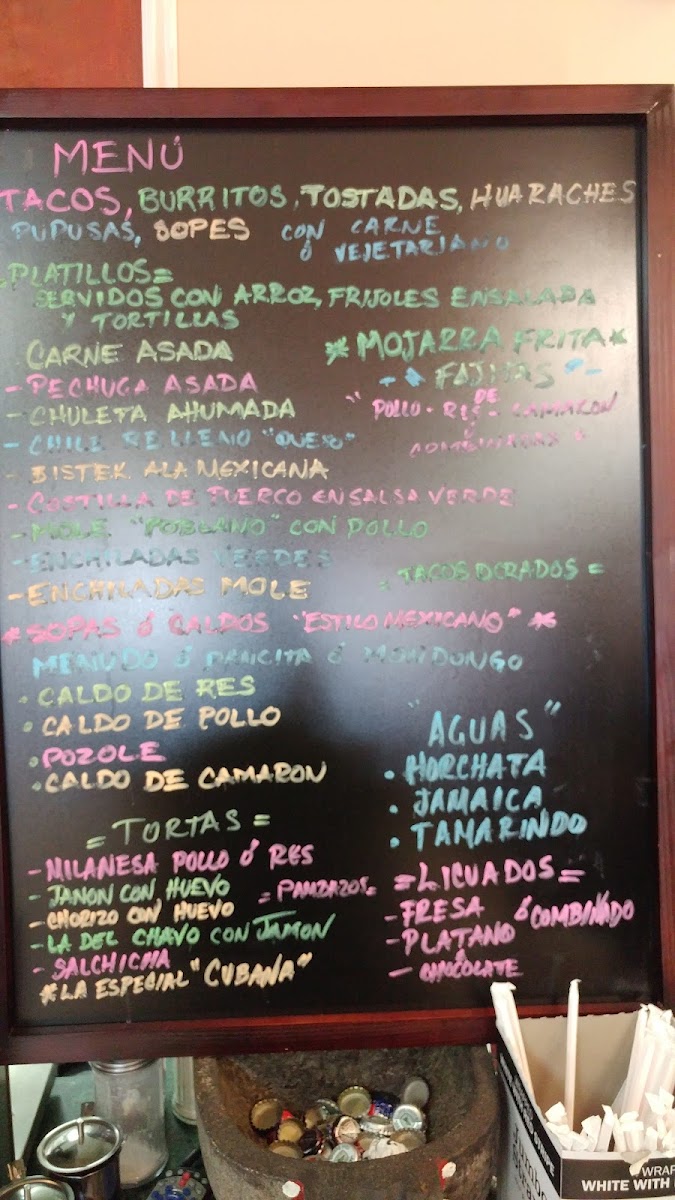 MENÚ
TACOS, BURRITOS, TOSTADAS, HUARACHES
PUPUSAS, SOPES CON CARNE
Ó VEJETARIANO
-PLATILLOS=
SERVIDOS CON ARROZ, FRIJOLES ENSALADA
Y TORTILLAS
CARNE ASADA
* MOJARRA FRITA *
- PECHUGA ASADA
FAJITAS
- CHULETA AHUMADA
" POLLO - RES - CAMARON
DE
Ó
COMBINADAS "
- CHILE RELLENO "QUESO"
- BISTEK ALA MEXICANA
- COSTILLA DE PUERCO EN SALSA VERDE
- MOLE "POBLANO" CON POLLO
- ENCHILADAS VERDES
= TACOS DORADOS =
- ENCHILADAS MOLE
* SOPAS Ó CALDOS "ESTILO MEXICANO" *
MENUDO Ó PANCITA Ó MONDONGO
. CALDO DE RES
. CALDO DE POLLO
. POZOLE
. CALDO DE CAMARON
"AGUAS"
. HORCHATA
. JAMAICA
. TAMARINDO
= TORTAS =
- MILANESA POLLO Ó RES
- JANON CON HUEVO
= PAMBAZOS =
- CHORIZO CON HUEVO
- LA DEL CHAVO CON JAMON
- SALCHICHA
* LA ESPECIAL "CUBANA"
= LICUADOS =
- FRESA Ó COMBINADO
- PLATANO
- CHOCOLATE
WRAP
WHITE WITH